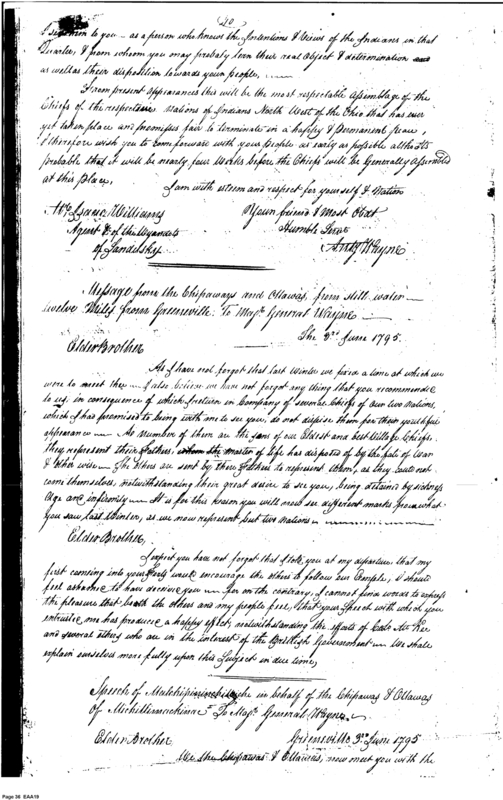 40
to you — as a person who knows the Intentions & Views of the Indians in that
Quarter, & from whom you may probably learn their real Object & determination
as well as their disposition towards your people, —
From present appearances this will be the most respectable Assemblage of the
Chiefs of the respective Nations of Indians North West of the Ohio that has ever
yet taken place and promises fair to terminate in a happy & permanent peace,
I therefore wish you to come forward with your people as early as possible altho its
probable that it will be nearly four Weeks before the Chiefs will be Generally Assembled
at this place,
I am with esteem and respect for yourself & Nation
Mr. Isaac Williams
Your friend & Most Obdt
Agent &c of the Wyandots
Humble Servt
of Sandusky
Anty Wayne
Message from the Chipaways and Ottawas, from still water —
twelve Miles from Greeneville to Majr General Wayne —
The 3rd June 1795.
Elder Brother
As I have not forgot that last Winter we fixed a time at which we
were to meet then — I also believe we have not forgot any thing that you recommended
to us, in consequence of which I return in Company of several Chiefs of our two Nations,
which I has promised to bring with me to see you, do not dispise them for their youthful
appearance — As number of them are the sons of our Eldest and best Village Chiefs,
they represent their Fathers, whom the master of life has disposed of by the fate of War
& other wise — The others are sent by their Fathers to represent them, as they could not
come themselves, notwithstanding their great desire to see you, being detained by sickness
Age and infirmity — It is for this reason you will now see different marks from what
you saw last Winter, as we now represent but two Nations —
Elder Brother,
I expect you have not forgot that I told you at my departure, that my
first coming into your Forts would encourage the others to follow our Example, I should
feel ashamed to have deceived you — for on the contrary, I cannot find words to express
the pleasure that both the others and my people feel, that your Speech with which you
entrusted me has produced a happy effect, notwithstanding the efforts of Colo McKee
and several others who are in the interest of the Brittish Government — We shall
explain ourselves more fully upon this Subject in due time,
Speech of in behalf of the Chipawas & Ottawas
of Michilimackinac To Majr General Wayne —
Greeneville 3rd June 1795
Elder Brother
We the Chipawas & Ottawas, now meet you with the
Page 36 EAA19